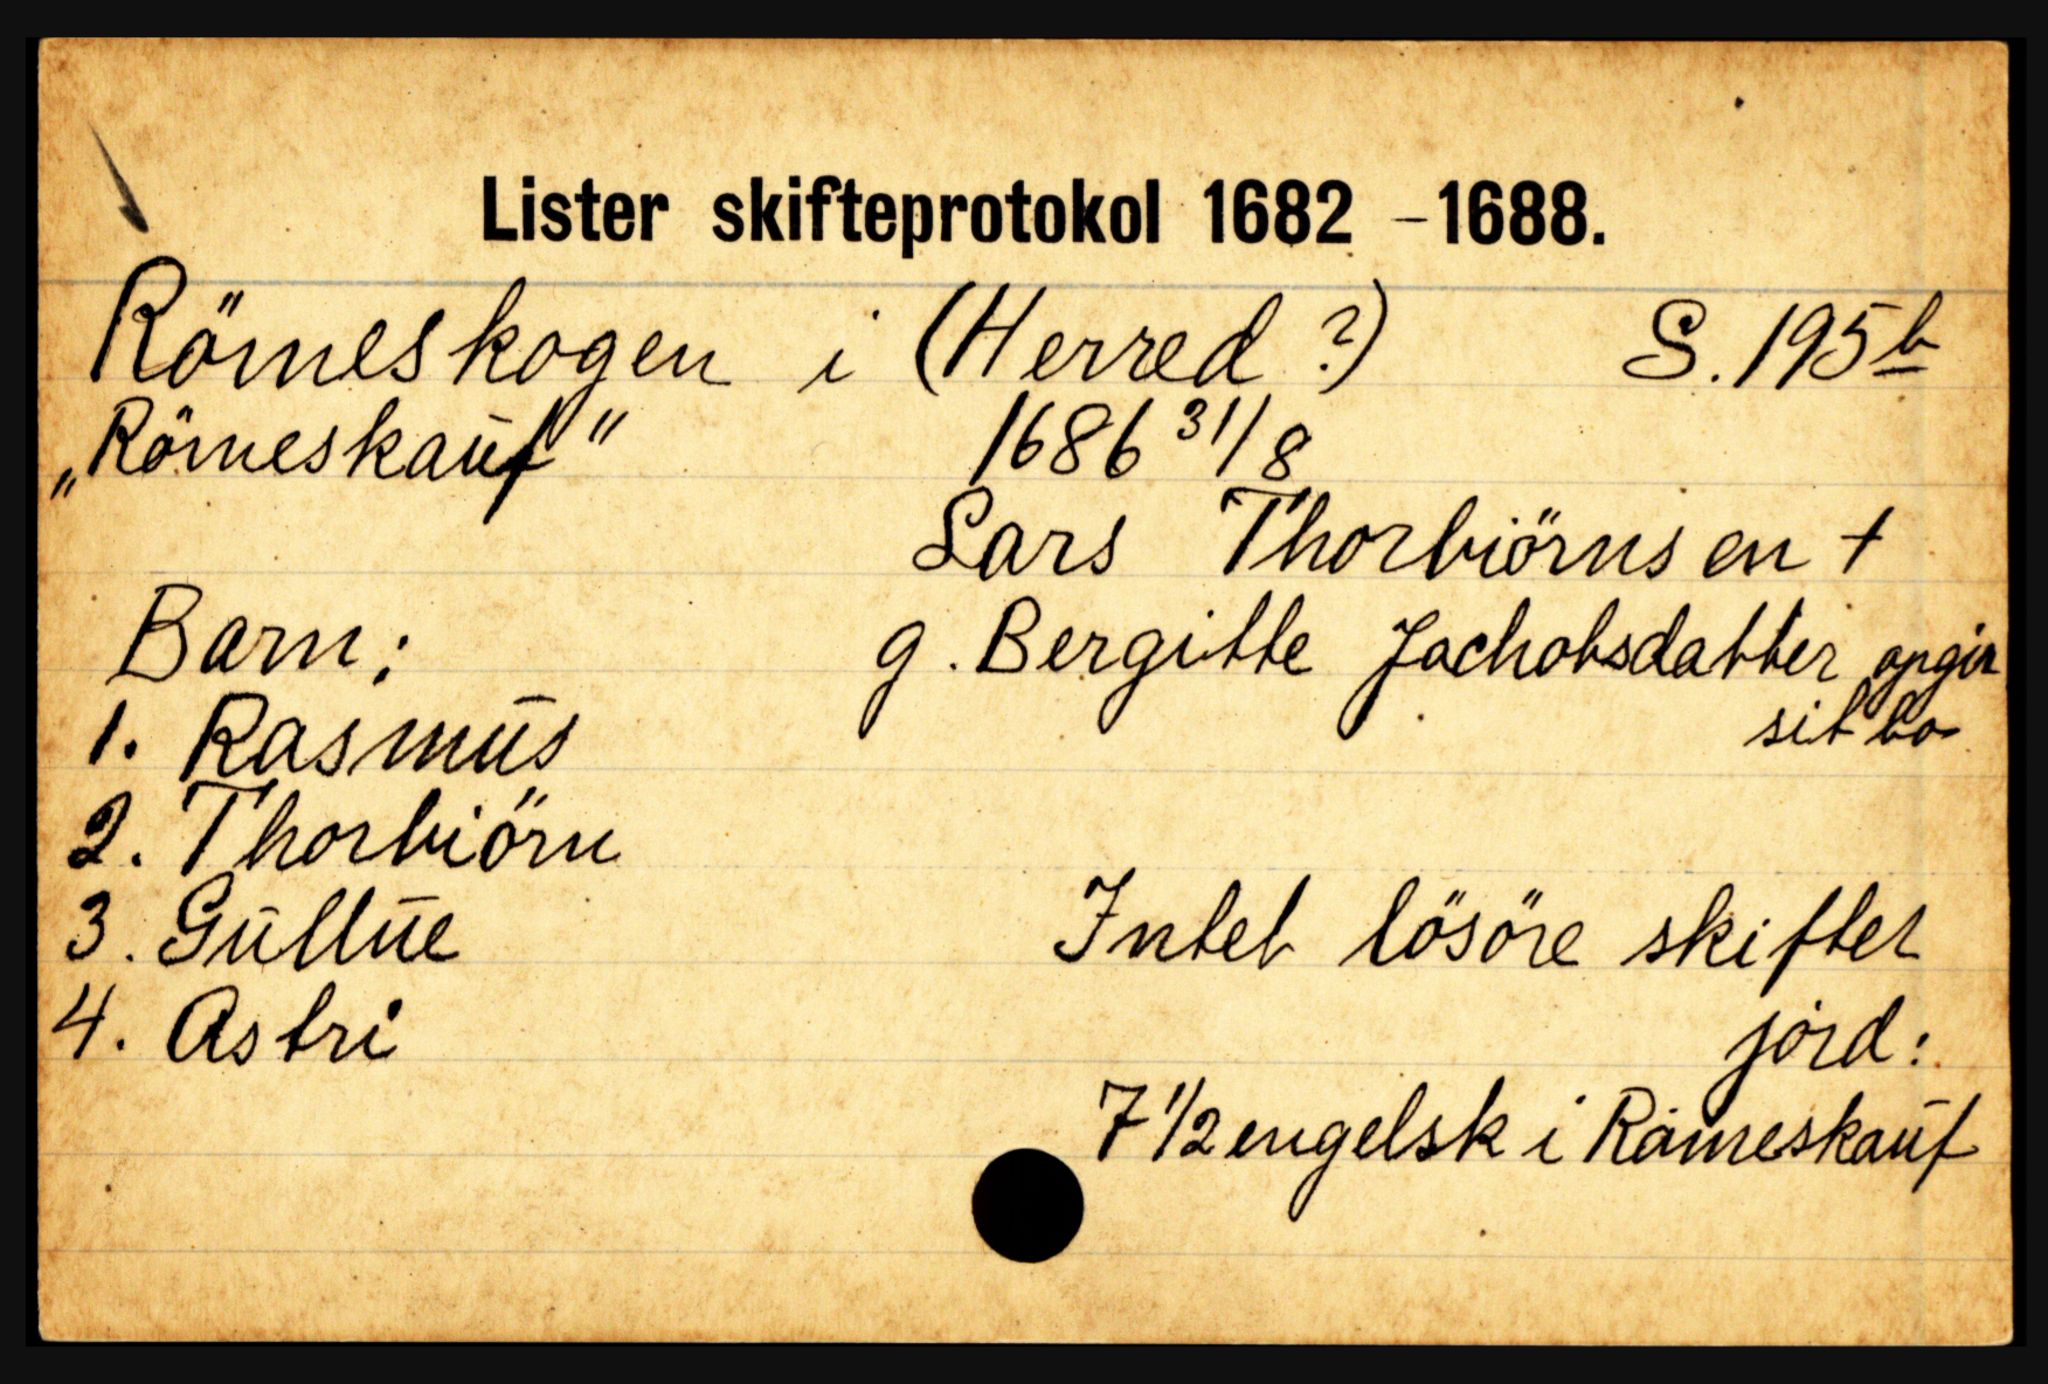 Lister skifteprotokol 1682 - 1688.
Römeskogen i (Herred ?) S. 195b
„Römeskauf" 1686 31/8
Lars Thorbiörnsen +
Barn: g. Bergitte Jachobsdatter opgir
sit bo
1. Rasmus
2. Thorbiörn
3. Gultue Intet lösöre skiftet
4. Astri jord:
7 1/2 engelsk i Rämeskauf